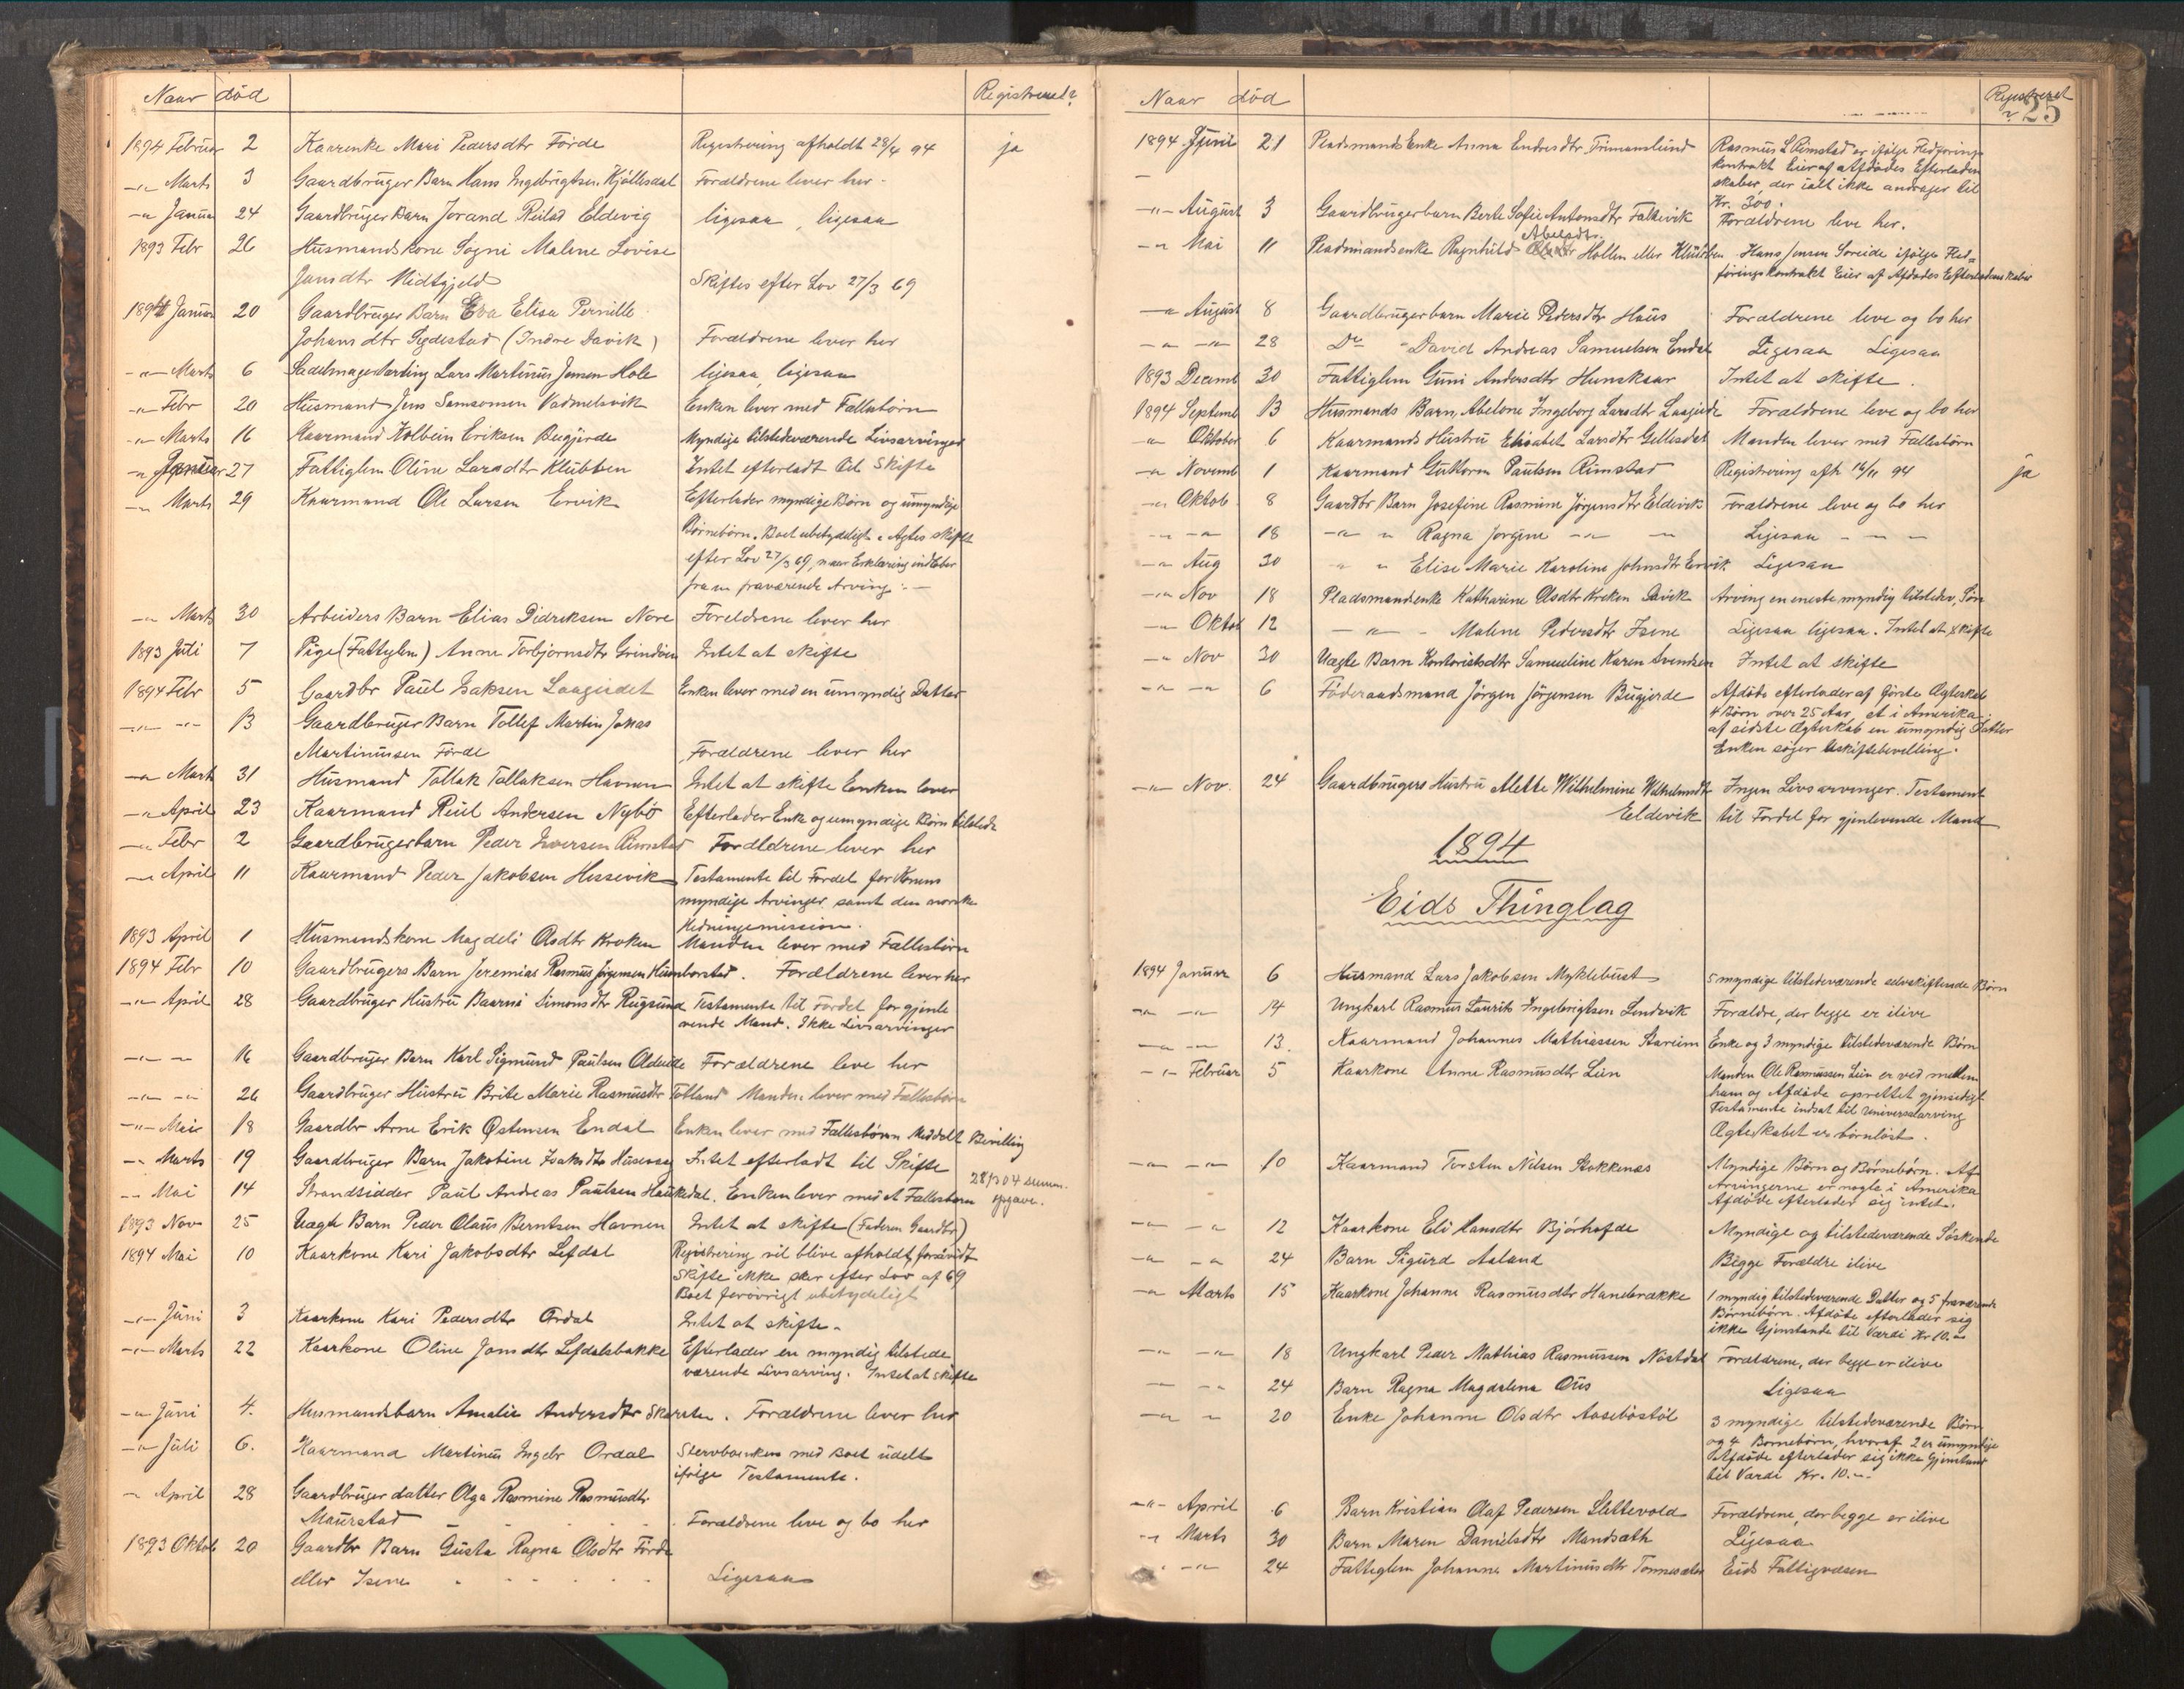 Naar død Registreret?
1894 Februar 2 Kaarenke Mari Pedersdtr Förde Registrering afholdt 28/4 94 ja
-"- Marts 3 Gaardbruger Barn Hans Ingebrigtsen Kjöllesdal Forældrene lever her.
-"- Januar 24 Gaardbruger Barn Jorand Reilad Eldevig ligesaa, ligesaa
1893 Febr 26 Husmandskone Sogni Malene Lovise
Jansdtr Midtgjeld Skiftes efter Lov 27/3 69
1894 Januar 20 Gaardbruger Barn Eva Elisa Pernille
Johansdtr Rygdestad (Indre Davik) Forældrene lever her
-"- Marts 6 Sadelmagerlærling Lars Martinus Jensen Hole ligesaa, ligesaa
-"- Febr 20 Husmand Jens Samsonsen Vadmelsvik Enken lever med Fællesbörn
-"- Marts 16 Kaarmand Kolbein Eriksen Bugjerde Myndige tilstedeværende Livsarvinger
-"- Januar 27 Fattiglem Oline Larsdtr Klubben Intet efterladt til Skifte
-"- Marts 29 Kaarmand Ole Larsen Ervik Efterlader myndige Börn og umyndige
Börnebörn. Boet ubetydeligt. Agtes skiftet
efter Lov 27/3 69, naar Erklæring indløber
fra en fraværende Arving.
-"- Marts 30 Arbeiders Barn Elias Didriksen Nore Foreldrene lever her
1893 Juli 7 Pige (Fattiglem) Anne Torbjornsdtr Grindöen Intet at skifte
1894 Febr 5 Gaardbr Paul Isaksen Laagiedet Enken lever med en umyndig Datter
-"- -"- 13 Gaardbruger Barn Tollef Martin Jonas
Martinussen Förde Forældrene lever her
-"- Marts 31 Husmand Tollak Tollaksen Havnen Intet at skifte Enken lever
-"- April 23 Kaarmand Reul Andersen Nybö Efterlader Enke og umyndige Börn tilstede
-"- Febr 2 Gaardbrugerbarn Peder Iversen Rimstad Forældrene lever her
-"- April 11 Kaarmand Peder Jakobsen Hessevik Testamente til Fordel for Konens
myndige Arvinger samt den norske
Hedningemission.
1893 April 1 Husmandskone Magdeli Olsdtr Kroken Manden lever med Fællesbörn
1894 Febr 10 Gaardbrugers Barn Jeremias Rasmus Jørgensen Humborstad. Forældrene lever her
-"- April 28 Gaardbruger Hustru Baarni Simonsdtr Rugsund Testamente til Fordel for gjenle
vende Mand. Ikke Livsarvinger
-"- -"- 16 Gaardbruger Barn Karl Sigmund Paulsen Oldeide Forældrene leve her
-"- -"- 26 Gaardbruger Hustru Brite Marie Rasmusdtr Totland Manden lever med Fællesbörn
-"- Mai 18 Gaardbr Arne Erik Østensen Endal Enken lever med Fællesbörn Meddelt Bevilling
-"- Marts 19 Gaardbruger Barn Jakobine Isaksdtr Husevaag Intet efterladt til Skifte
-"- Mai 14 Strandsidder Paul Andreas Paulsen Haukedal. Enken lever med et Fællesbarn opgave.
1893 Nov 25 Uægte Barn Peder Olaus Berntsen Havnen Intet at skifte (Faderen Gaardbr)
1894 Mai 10 Kaarkone Kari Jakobsdtr Lefdal Registrering vil blive afholdt, forsåvidt
Skifte ikke sker efter Lov af 69
Boet forøvrigt ubetydeligt
-"- Juni 3 Kaarkone Kari Pedersdtr Ordal Intet at skifte.
-"- Marts 22 Kaarkone Oline Jonsdtr Lefdalsbakke Efterlader en myndig tilstede
værende Livsarving. Intet at skifte
-"- Juni 4. Husmandsbarn Amalie Andersdtr Skorsten. Forældrene lever her
-"- Juli 6. Kaarmand Martinus Ingebr Ordal Stervboenken med Boet udelt
ifølge Testamente.
-"- April 28 Gaardbruger datter Olga Rasmine Rasmusdtr
Maurstad Forældrene leve og bo her
1893 Oktob 20 Gaardbr Barn Gusta Ragna Olsdtr Förde
eller Isene Ligesaa
Naar død Registreret ? 25
1894 Juni 21 Pladsmands Enke Anna Endresdtr Frimanslund Rasmus L Rimstad er ifølge Fledførings
kontrakt Eier af Afdødes Efterladen
skaber, der ialt ikke andrager til
Kr. 300.
-"- August 3 Gaardbrugerbarn Berte Sofie Antonsdtr Falkevik Forældrene leve her.
-"- Mai 11 Pladsmandsenke Ragnhild Abelsdtr. Hollen eller Klubben Hans Jensen Soreide ifølge Fled=
føringskontrakt Eier af Afdødes Efterladenskaber
-"- August 8 Gaardbrugerbarn Marie Pedersdtr Haus Forældrene leve og bo her
-"- -"- 28 Do David Andreas Samuelsen Endal Ligesaa Ligesaa
1893 Decemb 30 Fattiglem Guni Andersdtr Hunskaar Intet at skifte.
1894 Septemb 13 Husmands Barn, Abelone Ingeborg Larsdtr Laagiede Forældrene leve og bo her
-"- Oktober 6 Kaarmands Hustru Elisabet Larsdtr Gellesdal Manden lever med Fællesbörn
-"- Novemb 1 Kaarmand Guttorm Paulsen Rimstad Registrering afh 14/11 94 ja
-"- Oktob 8 Gaardbr Barn Josefine Rasmine Jörgensdtr Eldevik Forældrene leve og bo her
-"- -"- 18 -"- " Ragna Jorgine -"- -"- Ligesaa - - -
-"- Aug 30 " " Elise Marie Karoline Johnsdtr Ervik Ligesaa
-"- Nov 18 Pladsmandsenke Katharine Olsdtr Kroken Davik Arving en eneste myndig tilstedev. Sön
-"- Oktob 12 -"- Malene Pedersdtr Isene Ligesaa ligesaa. Intet at skifte
-"- Nov 30 Uægte Barn Kontoristsdtr Samueline Karen Svendsen Intet at skifte
-"- -"- 6 Föderaadsmand Jörgen Jörgensen Bugjerde Afdöde efterlader af første Ægteskab
4 Börn over 25 Aar, et i Amerika.
af sidste Ægteskab en umyndig Datter
Enken søger Uskiftebevilling.
-"- Nov. 24 Gaardbrugers Hustru Alette Wilhelmine Wilhelmsdtr Ingen Livsarvinger. Testament
Eldevik til Fordel for gjenlevende Mand
1894
Eids Thinglag
1894 Januar 6 Husmand Lars Jakobsen Myklebust 5 myndige tilstedeværende selvskiftende Börn
-"- -"- 14 Ungkarl Rasmus Laurits Ingebrigtsen Lendvik Forældre, der begge er ilive
-"- -"- 13. Kaarmand Johannes Mathiassen Stareim Enke og 3 myndige tilstedeværende Börn
-"- Februar 5 Kaarkone Anne Rasmusdtr Lien Manden Ole Rasmussen Lien er ved mellem
ham og Afdøde oprettet gjensidigt
Testamente indsat til Universalarving
Ægteskabet er børnløst.
-"- -"- 10 Kaarmand Torsten Nilsen Stokkenes Myndige Börn og Börnebörn. Af
Arvingerne er nogle i Amerika
Afdöde efterlader sig intet.
-"- -"- 12 Kaarkone Eli Hansdtr Bjórhofde Myndige og tilstedeværende Söskende
-"- -"- 24 Barn Sigurd Aaland Begge Forældre ilive
-"- Marts 15 Kaarkone Johanne Rasmusdtr Hanebrække 1 myndig tilstedeværende Datter og 5 fraværende
Börnebörn. Afdöde efterlader sig
ikke Gjenstande til Værdi Kr 10.-
-"- -"- 18 Ungkarl Peder Mathias Rasmussen Nöstdal Forældrene, der begge er ilive
-"- -"- 24 Barn Ragna Magdalena Ous Ligesaa
-"- -"- 20 Enke Johanne Olsdtr Aaseböstöl 3 myndige tilstedeværende Börn
og 4 Bornebörn, hvoraf 2 er umyndige
Afdöde efterlader sig ikke Gjenstand
til Værdi Kr. 10.-
-"- April 6 Barn Kristian Olaf Pedersen Slettevold Forældrene, der begge er ilive
-"- Marts 30 Barn Maren Danielsdtr Mandsæth Ligesaa
-"- -"- 24 Fattiglem Johanne Martinusdtr Eids Fattigvæsen